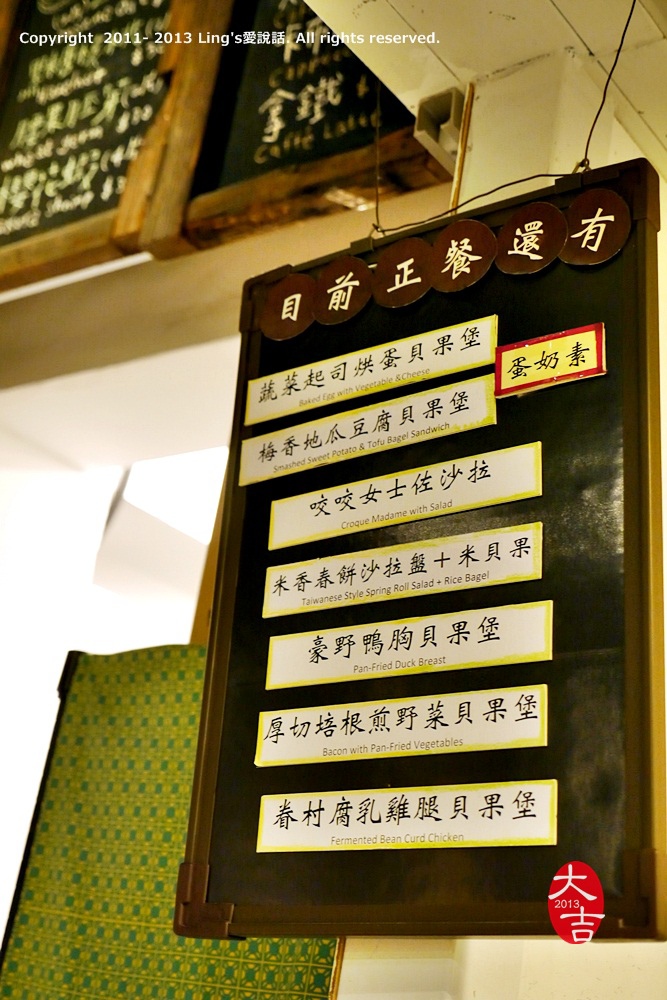 Copyright 2011- 2013 Ling's愛說話. All rights reserved.
拿鐵
Caffè Latte
目前正餐還有
蔬菜起司烘蛋貝果堡
Baked Egg with Vegetable &Cheese
蛋奶素
梅香地瓜豆腐貝果堡
Smashed Sweet Potato & Tofu Bagel Sandwich
咬咬女士佐沙拉
Croque Madame with Salad
米香春餅沙拉盤＋米貝果
Taiwanese Style Spring Roll Salad + Rice Bagel
豪野鴨胸貝果堡
Pan-Fried Duck Breast
厚切培根煎野菜貝果堡
Bacon with Pan-Fried Vegetables
眷村腐乳雞腿貝果堡
Fermented Bean Curd Chicken
大吉
2013